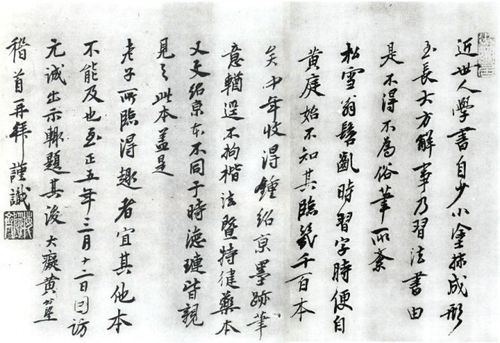 近世人學書自少小塗抹成形
至長大方解事乃習法書由
是不得不爲俗筆所紊
松雪翁髫齔時習字時便自
黃庭始不知其臨幾千百本
矣中年收得鍾紹京墨跡筆
意不拘楷法暨特健藥本
又與紹京本不同于時德璉皆親
見之此本蓋是
老子所臨得趣者宜其他本
不能及也至正五年三月十二日因訪
元誠出示輒題其後大癡黃公望
稽首再拜謹識